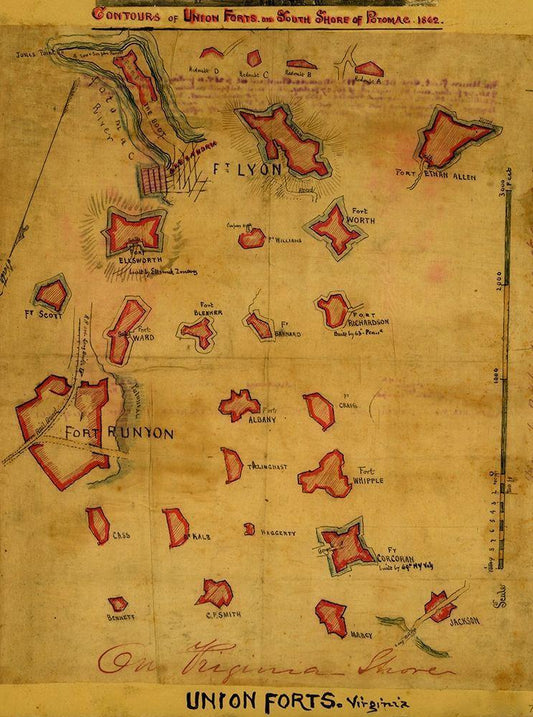 CONTOURS OF UNION FORTS. ON SOUTH SHORE OF POTOMAC. 1862.
JONES POINT
Redoubt D
Redoubt C
Redoubt B
Redoubt A
POTOMAC
River
ALEXANDRIA
FT LYON
FORT ETHAN ALLEN
3000 Feet
FORT ELLSWORTH
FT WILLIAMS
FORT WORTH
2000
FT SCOTT
FORT WARD
FORT BLENKER
FT BARNARD
FORT RICHARDSON
FORT RUNYON
FORT ALBANY
FT CRAIG
1000
TILLINGHAST
FORT WHIPPLE
CASS
DE KALB
HAGGERTY
FT CORCORAN
built by 69th NY Vols
BENNETT
C.F. SMITH
MARCY
JACKSON
Scale
On Virginia Shore
UNION FORTS. Virginia